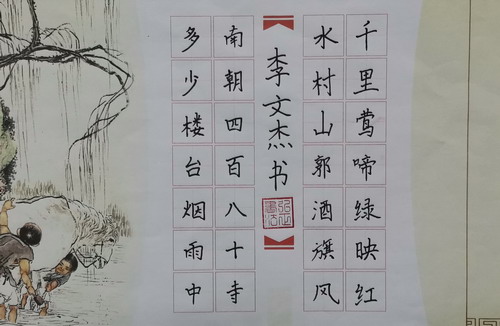 千里莺啼绿映红
水村山郭酒旗风
李文杰书
南朝四百八十寺
多少楼台烟雨中